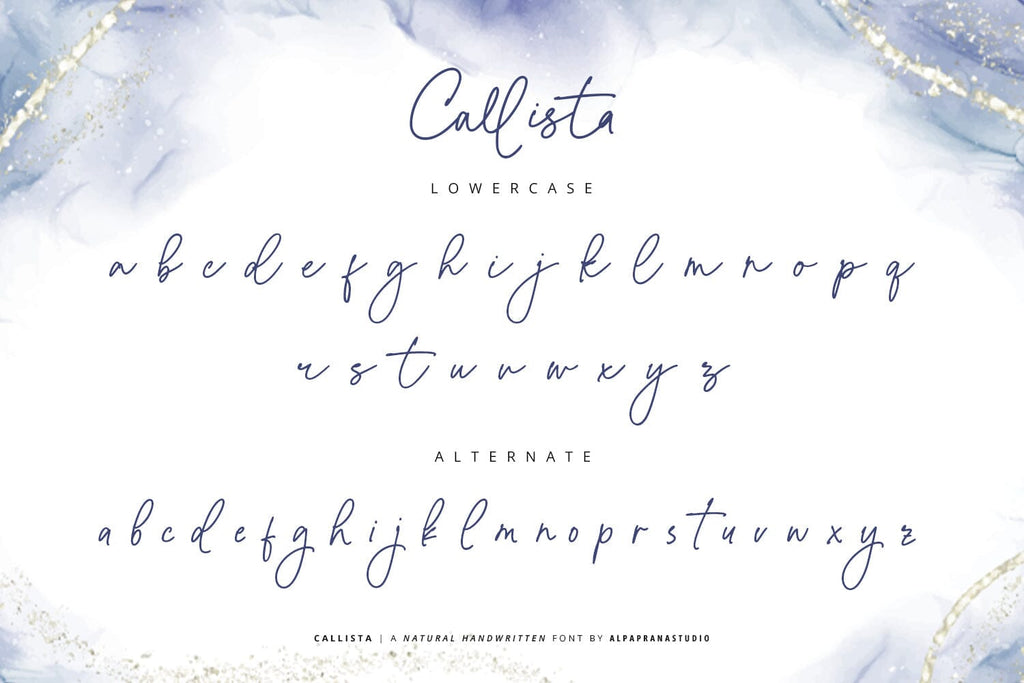 Callista
LOWERCASE
a b c d e f g h i j k l m n o p q
r s t u v w x y z
ALTERNATE
a b c d e f g h i j k l m n o p r s t u v w x y z
CALLISTA | A NATURAL HANDWRITTEN FONT BY ALPAPRANASTUDIO